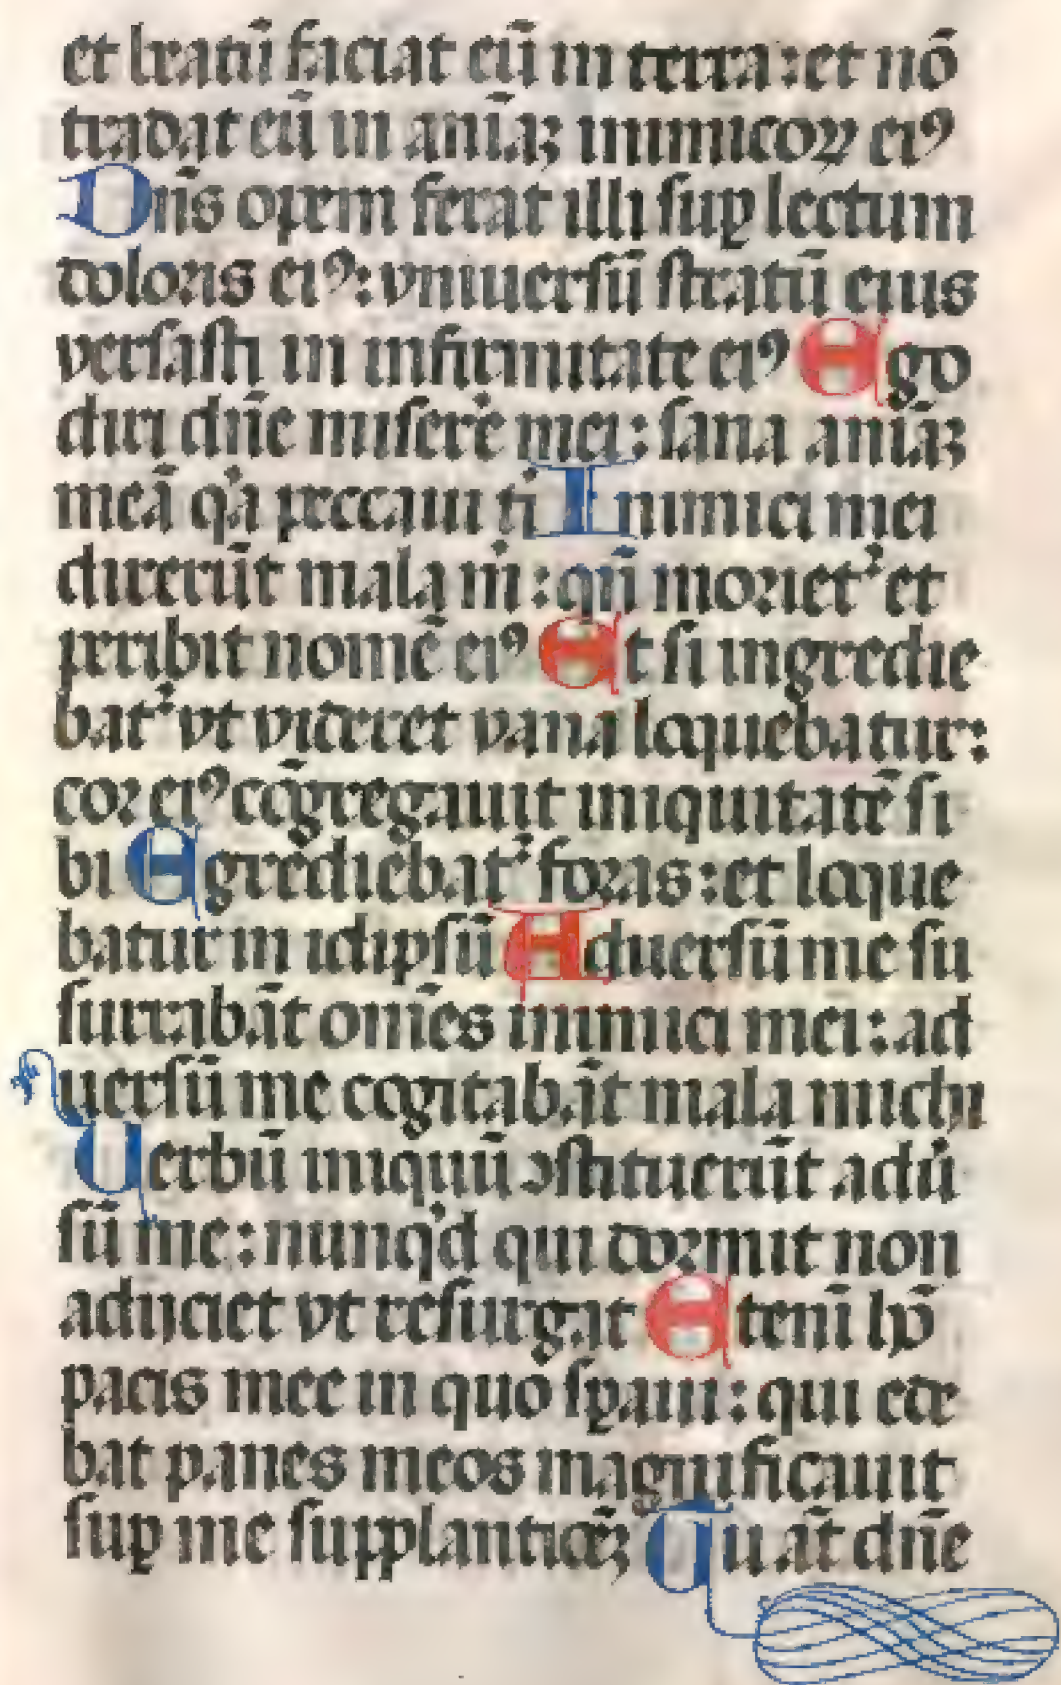 et beatū faciat eū in terra: et nō
tradat eū in aniāꝫ inimicoꝝ eiꝰ
Dn̄s opem ferat illi suꝑ lectum
doloris eiꝰ: vniuersū stratū eius
versasti in infirmitate eiꝰ Ego
dixi dn̄e miserē mei: sana aniāꝫ
meā qͥa peccaui ti Inimici mei
dixerūt mala m̄: qn̄ moriet᷑ et
peribit nomē eiꝰ Et si ingredie
bat᷑ vt videret vana loquebatur:
cor eiꝰ cōgregauit iniquitatē si
bi Egrediebat᷑ foras: et loque
batur in idipsū Aduersū me su
surrabāt om̄es inimici mei: ad
uersū me cogitabāt mala michi
Verbū iniquū ꝯstituerūt adū
sū me: nunqͥd qui dormit non
adijciet vt resurgat Etenī hō
pacis mee in quo sꝑaui: qui ede
bat panes meos magnificauit
suꝑ me supplantōeꝫ Tu āt dn̄e